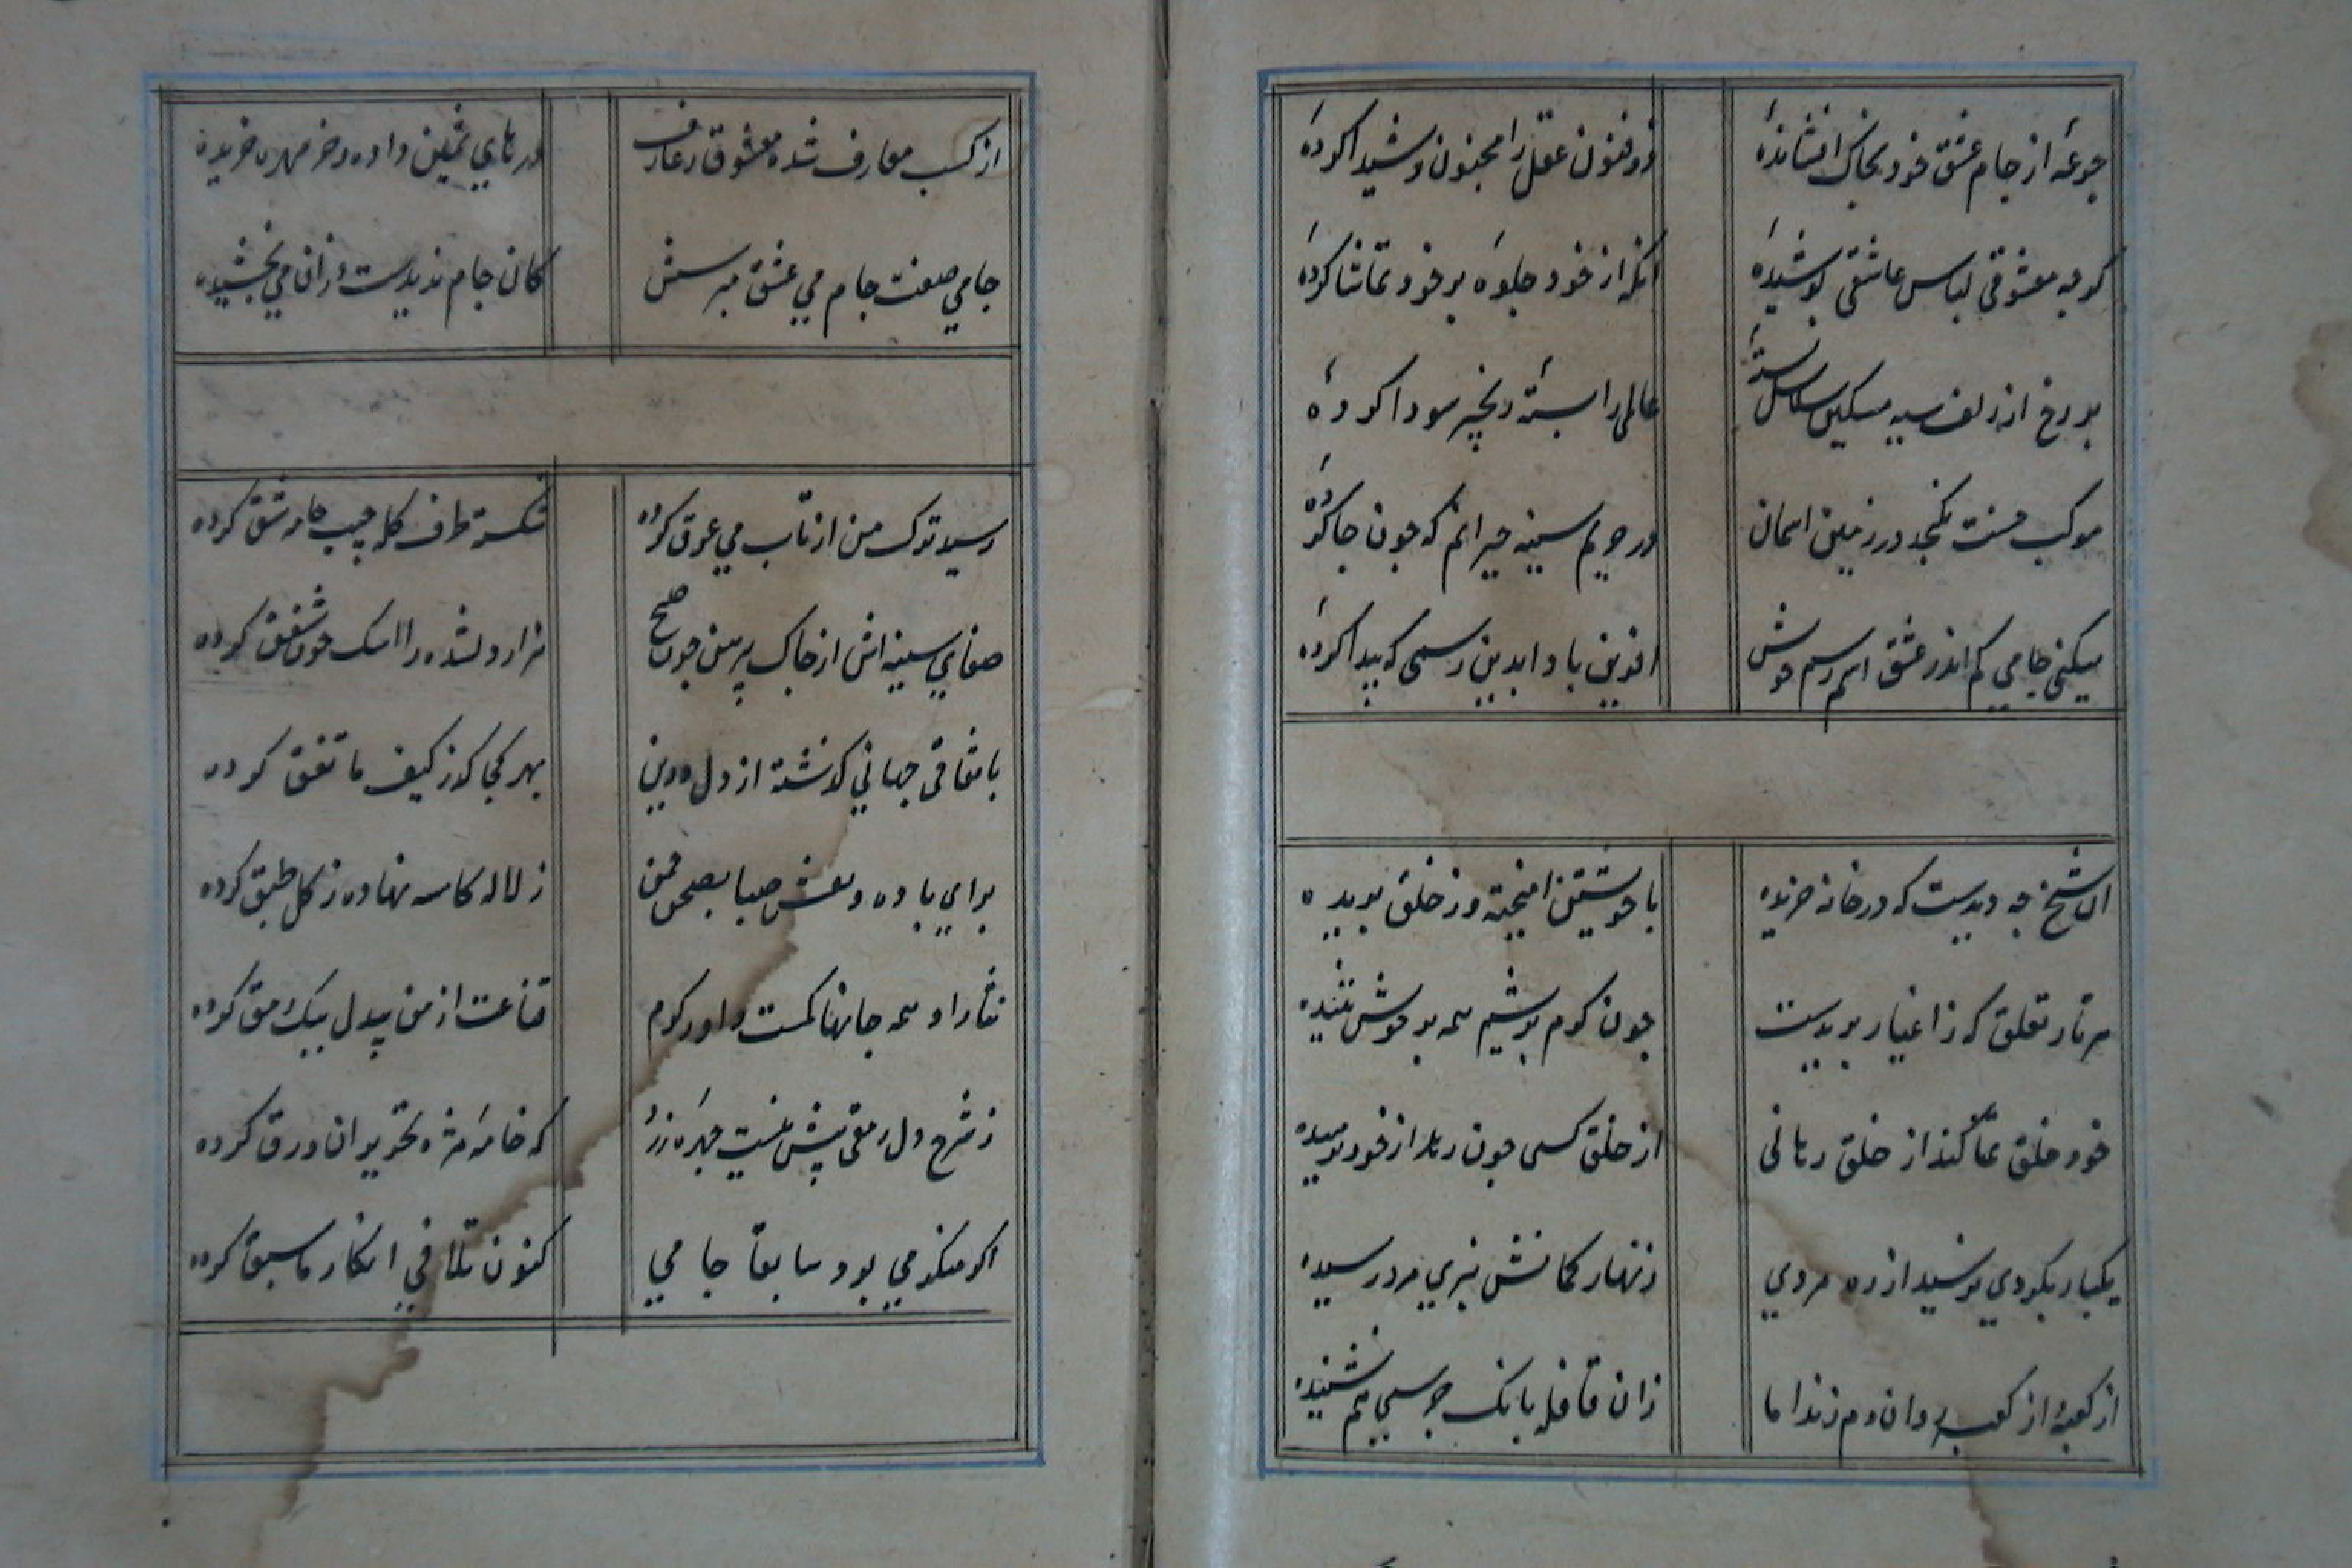 جرعهٔ از جام عشق خود بخاک افشاندهٔ
ذوفنون عقل را مجنون و شیدا کردهٔ
گرچه معشوقی لباس عاشقی پوشیدهٔ
انکه از خود جلوهٔ بر خود تماشا کردهٔ
بر رخ از زلف سیه مشکین سلاسل بستهٔ
عالمی را بستهٔ زنجیر سودا کردهٔ
موکب حسنت نکنجد در زمین اسمان
در حریم سینه حیرانم که چون جا کردهٔ
میکنی جامی کم اندر عشق اسم رسم خویش
افرین بادا بدین رسمی که پیدا کردهٔ
ان شیخ چه دیدست که در خانه خزیده
با خویشتن امیخته وز خلق بریده
هر تار تعلق که ز اغیار بریدست
چون کرم بریشم همه بر خویش تنیده
خود خلق تمنا کند از خلق رهائی
از خلق کسی چون رهد از خود نرمیده
یکبار بکردی نرسید از ره مردی
زنهار کمانش نبری مرد رسیده
از کعبه و از کعبه روان دم زند اما
زان قافله بانک جرسی هم نشنیده
از کسب معارف شده مشعوف زخارف
درهای ثمین داده و خرمهره خریده
جامی صفت جام می عشق مپرسش
کان جام ندیدست و زان می نچشیده
رسید ترک من از تاب می عرق کرده
شکسته طرف کله جیب جامه شق کرده
صفای سینه اش از چاک پیرهن چون صبح
هزار دلشده را اشک چون شفق کرده
باتفاق جهانی گذشته از دل و دین
بهر کجا گذر کیف ما اتفق کرده
برای باده و نقلش صبا بصحن چمن
ز لاله کاسه نهاده ز کل طبق کرده
نثار او همه جانها کمست و او ز کرم
قناعت از من بیدل بیک رمق کرده
ز شرح دل رمقی بیش نیست چهره زرد
که خامهٔ مژه تحریر ان ورق کرده
اگر منکر می بود سابقا جامی
کنون تلافی انکار ما سبق کرده